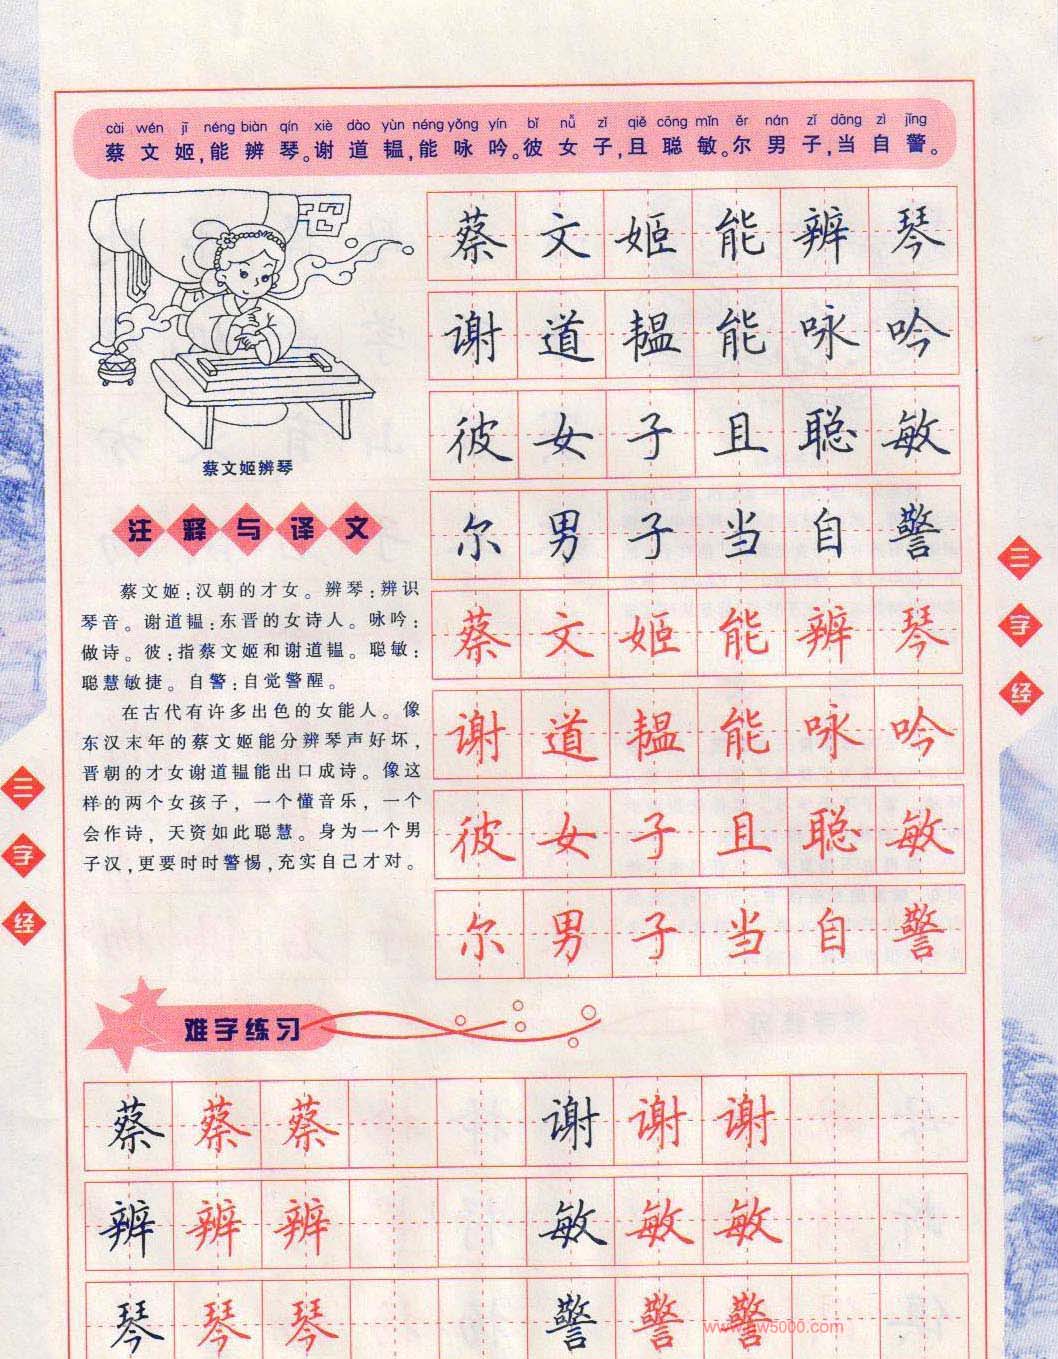 cài wén jī néng biàn qín xiè dào yùn néng yǒng yín bǐ nǚ zǐ qiě cōng mǐn ěr nán zǐ dāng zì jǐng
蔡文姬,能辨琴。谢道韫,能咏吟。彼女子,且聪敏。尔男子,当自警。
蔡文姬能辨琴
谢道韫能咏吟
彼女子且聪敏
尔男子当自警
蔡文姬能辨琴
谢道韫能咏吟
彼女子且聪敏
尔男子当自警
蔡文姬辨琴
注释与译文
蔡文姬:汉朝的才女。辨琴:辨识
琴音。谢道韫:东晋的女诗人。咏吟:
做诗。彼:指蔡文姬和谢道韫。聪敏:
聪慧敏捷。自警:自觉警醒。
在古代有许多出色的女能人。像
东汉末年的蔡文姬能分辨琴声好坏,
晋朝的才女谢道韫能出口成诗。像这
样的两个女孩子,一个懂音乐,一个
会作诗,天资如此聪慧。身为一个男
子汉,更要时时警惕,充实自己才对。
三字经
三字经
难字练习
蔡蔡蔡 谢谢谢
辨辨辨 敏敏敏
琴琴琴 警警警